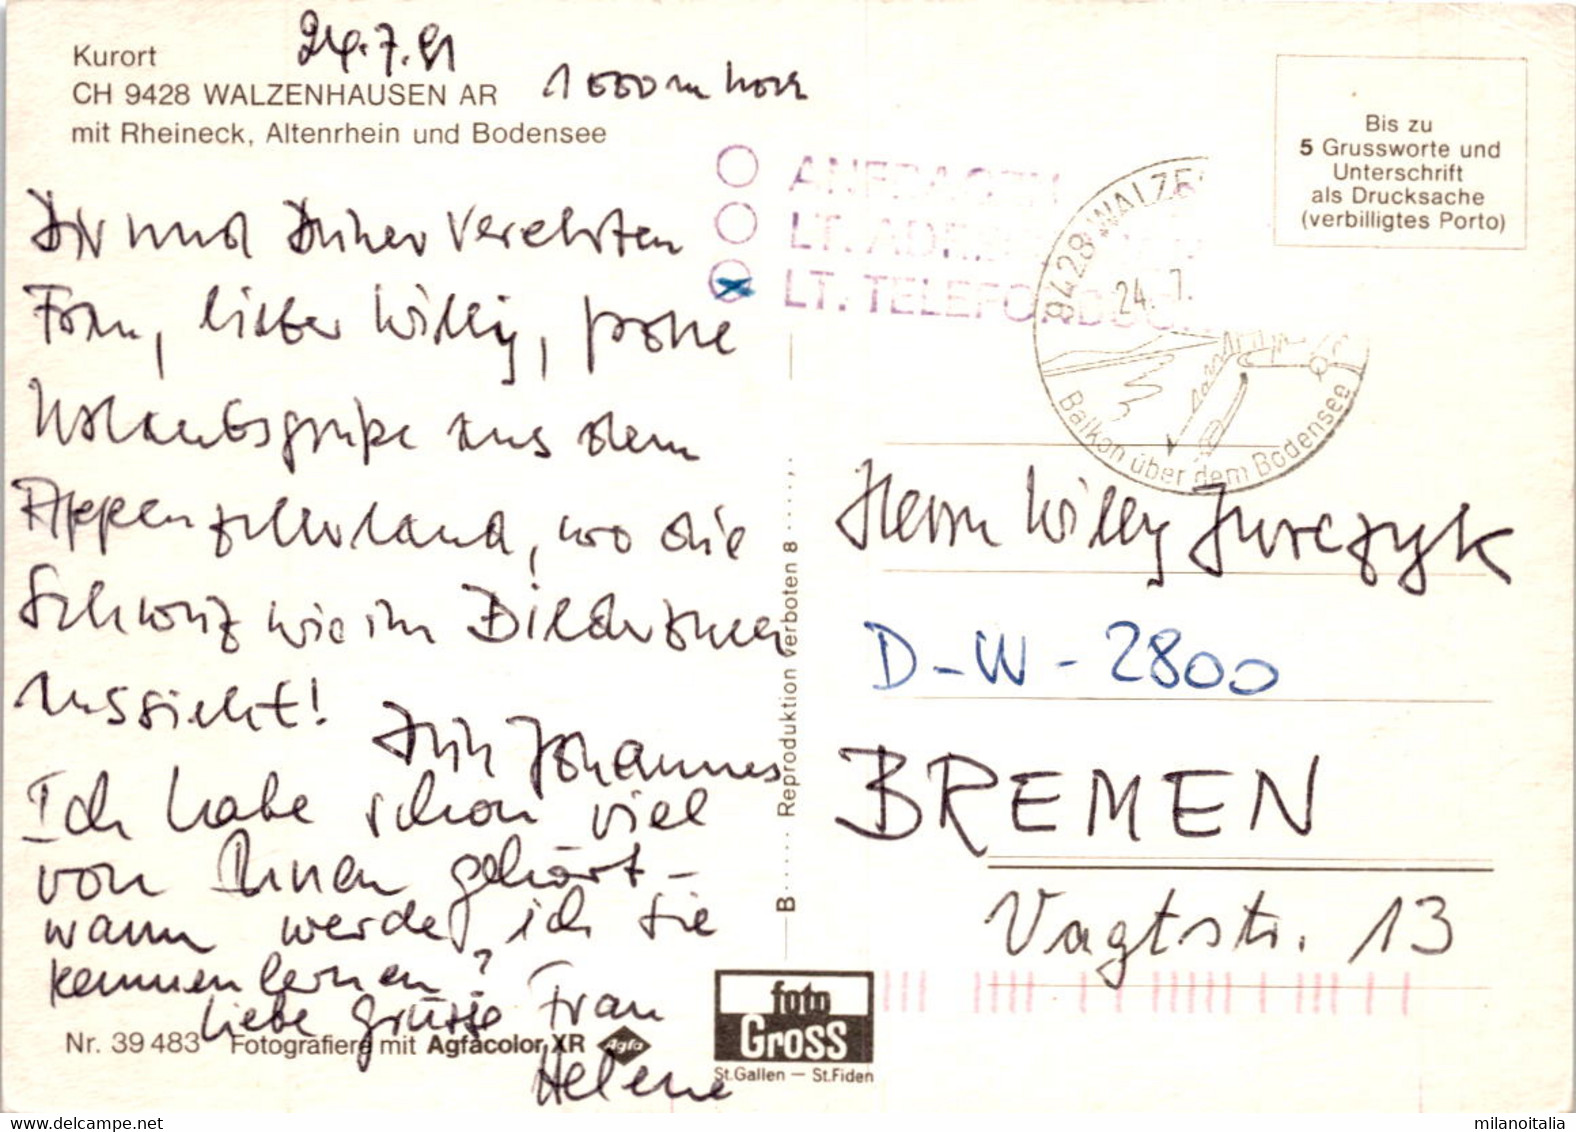 Kurort
24.7.91
CH 9428 WALZENHAUSEN AR
1000 m hoch
mit Rheineck, Altenrhein und Bodensee
Dir und Deiner verehrten
Frau, lieber Willy, frohe
Urlaubsgrüße aus dem
Appenzellerland, wo die
Schweiz wie im Bilderbuch
aussieht!
Dein Johannes
Ich habe schon viel
von Ihnen gehört –
wann werde ich Sie
kennenlernen?
Liebe Grüsse Frau
Helene
Nr. 39 483 Fotografieren mit Agfacolor XR Agfa
B..... Reproduktion verboten 8.....
foto
Gross
St.Gallen — St.Fiden
ANFRAGEN
LT. ADR.
LT. TELEFON
9428 WALZE
24.7.
Balkon über dem Bodensee
Bis zu
5 Grussworte und
Unterschrift
als Drucksache
(verbilligtes Porto)
Herrn Willy Jurczyk
D-W-2800
BREMEN
Vagtstr. 13
milanoitalia